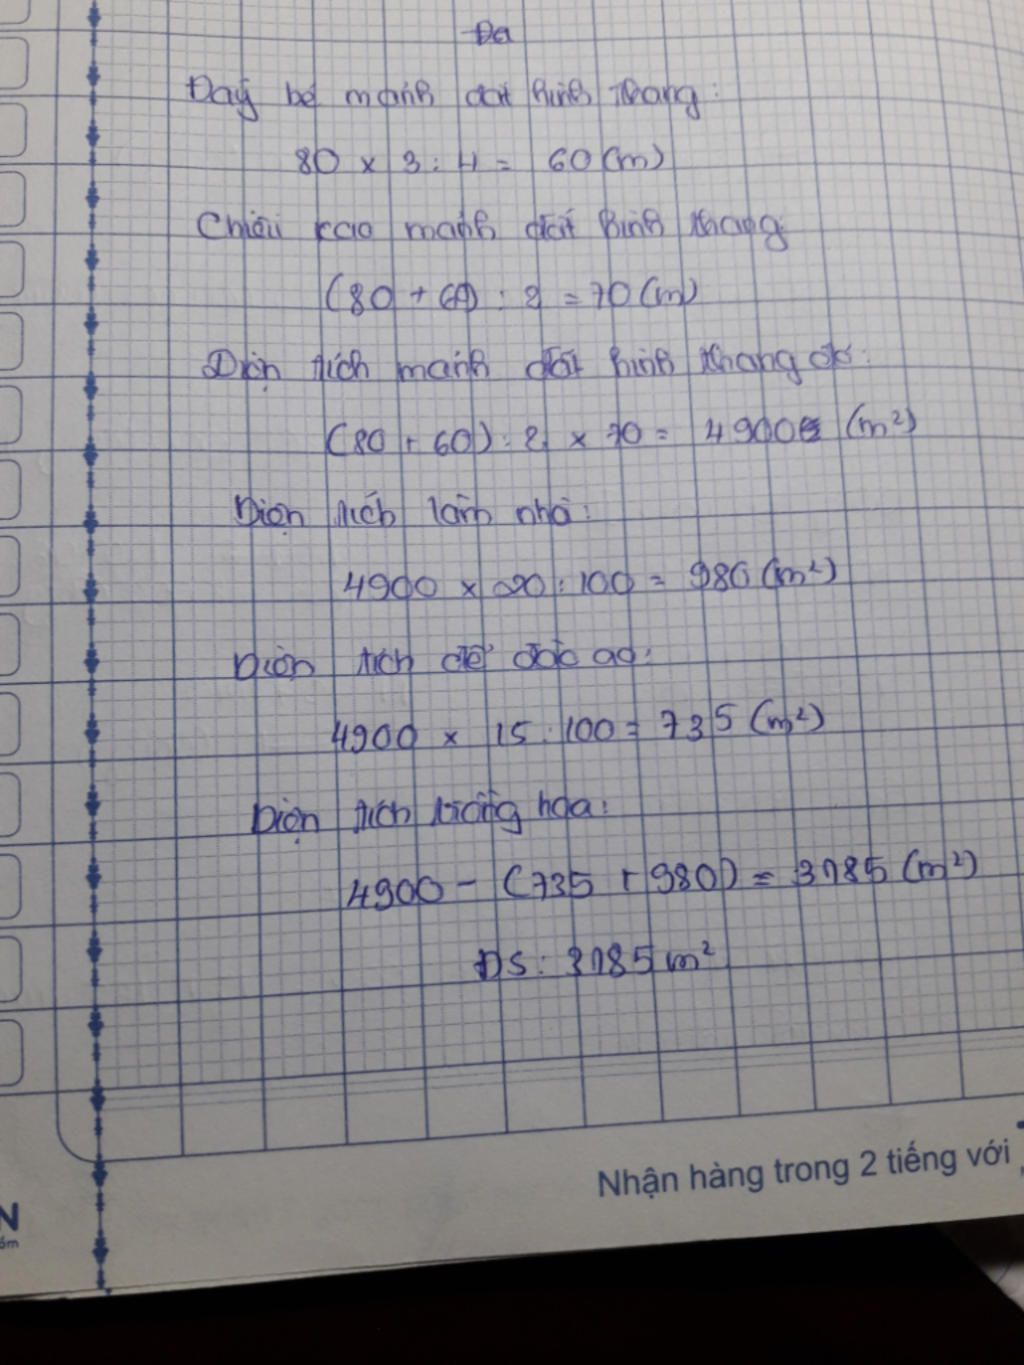 Đa
Đáy bé mảnh đất hình thang:
80 x 3 : 4 = 60 (m)
Chiều cao mảnh đất hình thang
(80 + 60) : 2 = 70 (m)
Diện tích mảnh đất hình thang đó:
(80 + 60) : 2 x 70 = 4900 (m²)
Diện tích làm nhà:
4900 x 20 : 100 = 980 (m²)
Diện tích để đào ao:
4900 x 15 : 100 = 735 (m²)
Diện tích trồng hoa:
4900 - (735 + 980) = 3185 (m²)
ĐS: 3185 m²
Nhận hàng trong 2 tiếng với
N